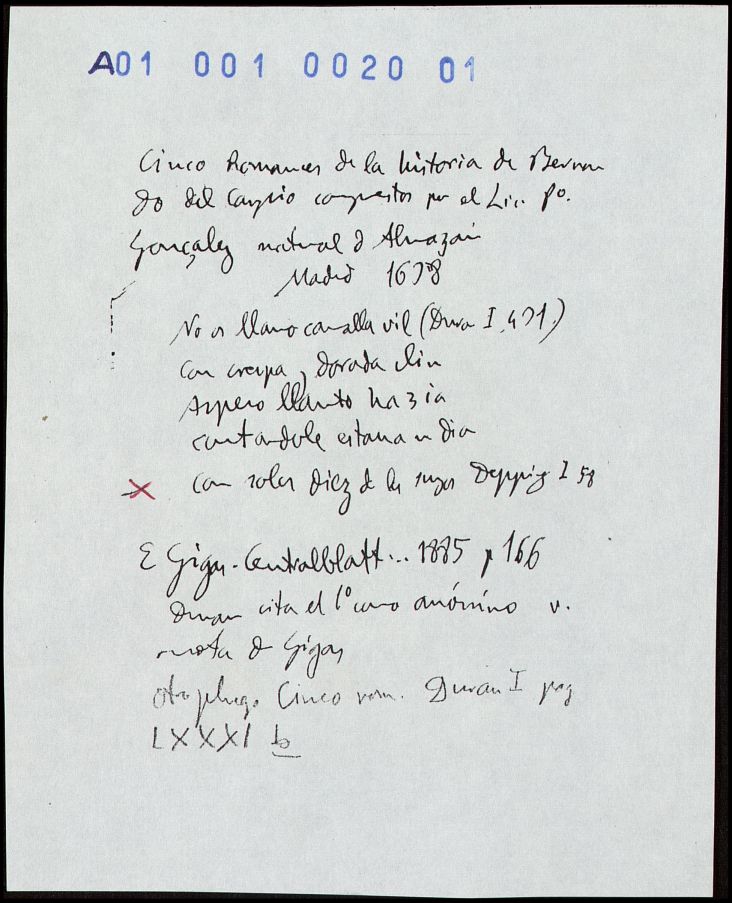 A01 001 0020 01
Cinco Romances de la historia de Bernar
do del Carpio compuestos por el Lic. Po.
Gonçalez natural d Almazán
Madrid 1678
No os llamo canalla vil (Duran I, 431.)
con crespa y dorada clin
Aspero llanto hazia
contandole estaua un dia
X con solos diez de los suyos Depping I 58
E Gigas. Centralblatt... 1885 p 166
Duran cita el 1º como anónimo v.
nota d Gigas
otro pliego Cinco rom. Duran I pag
LXXXI b